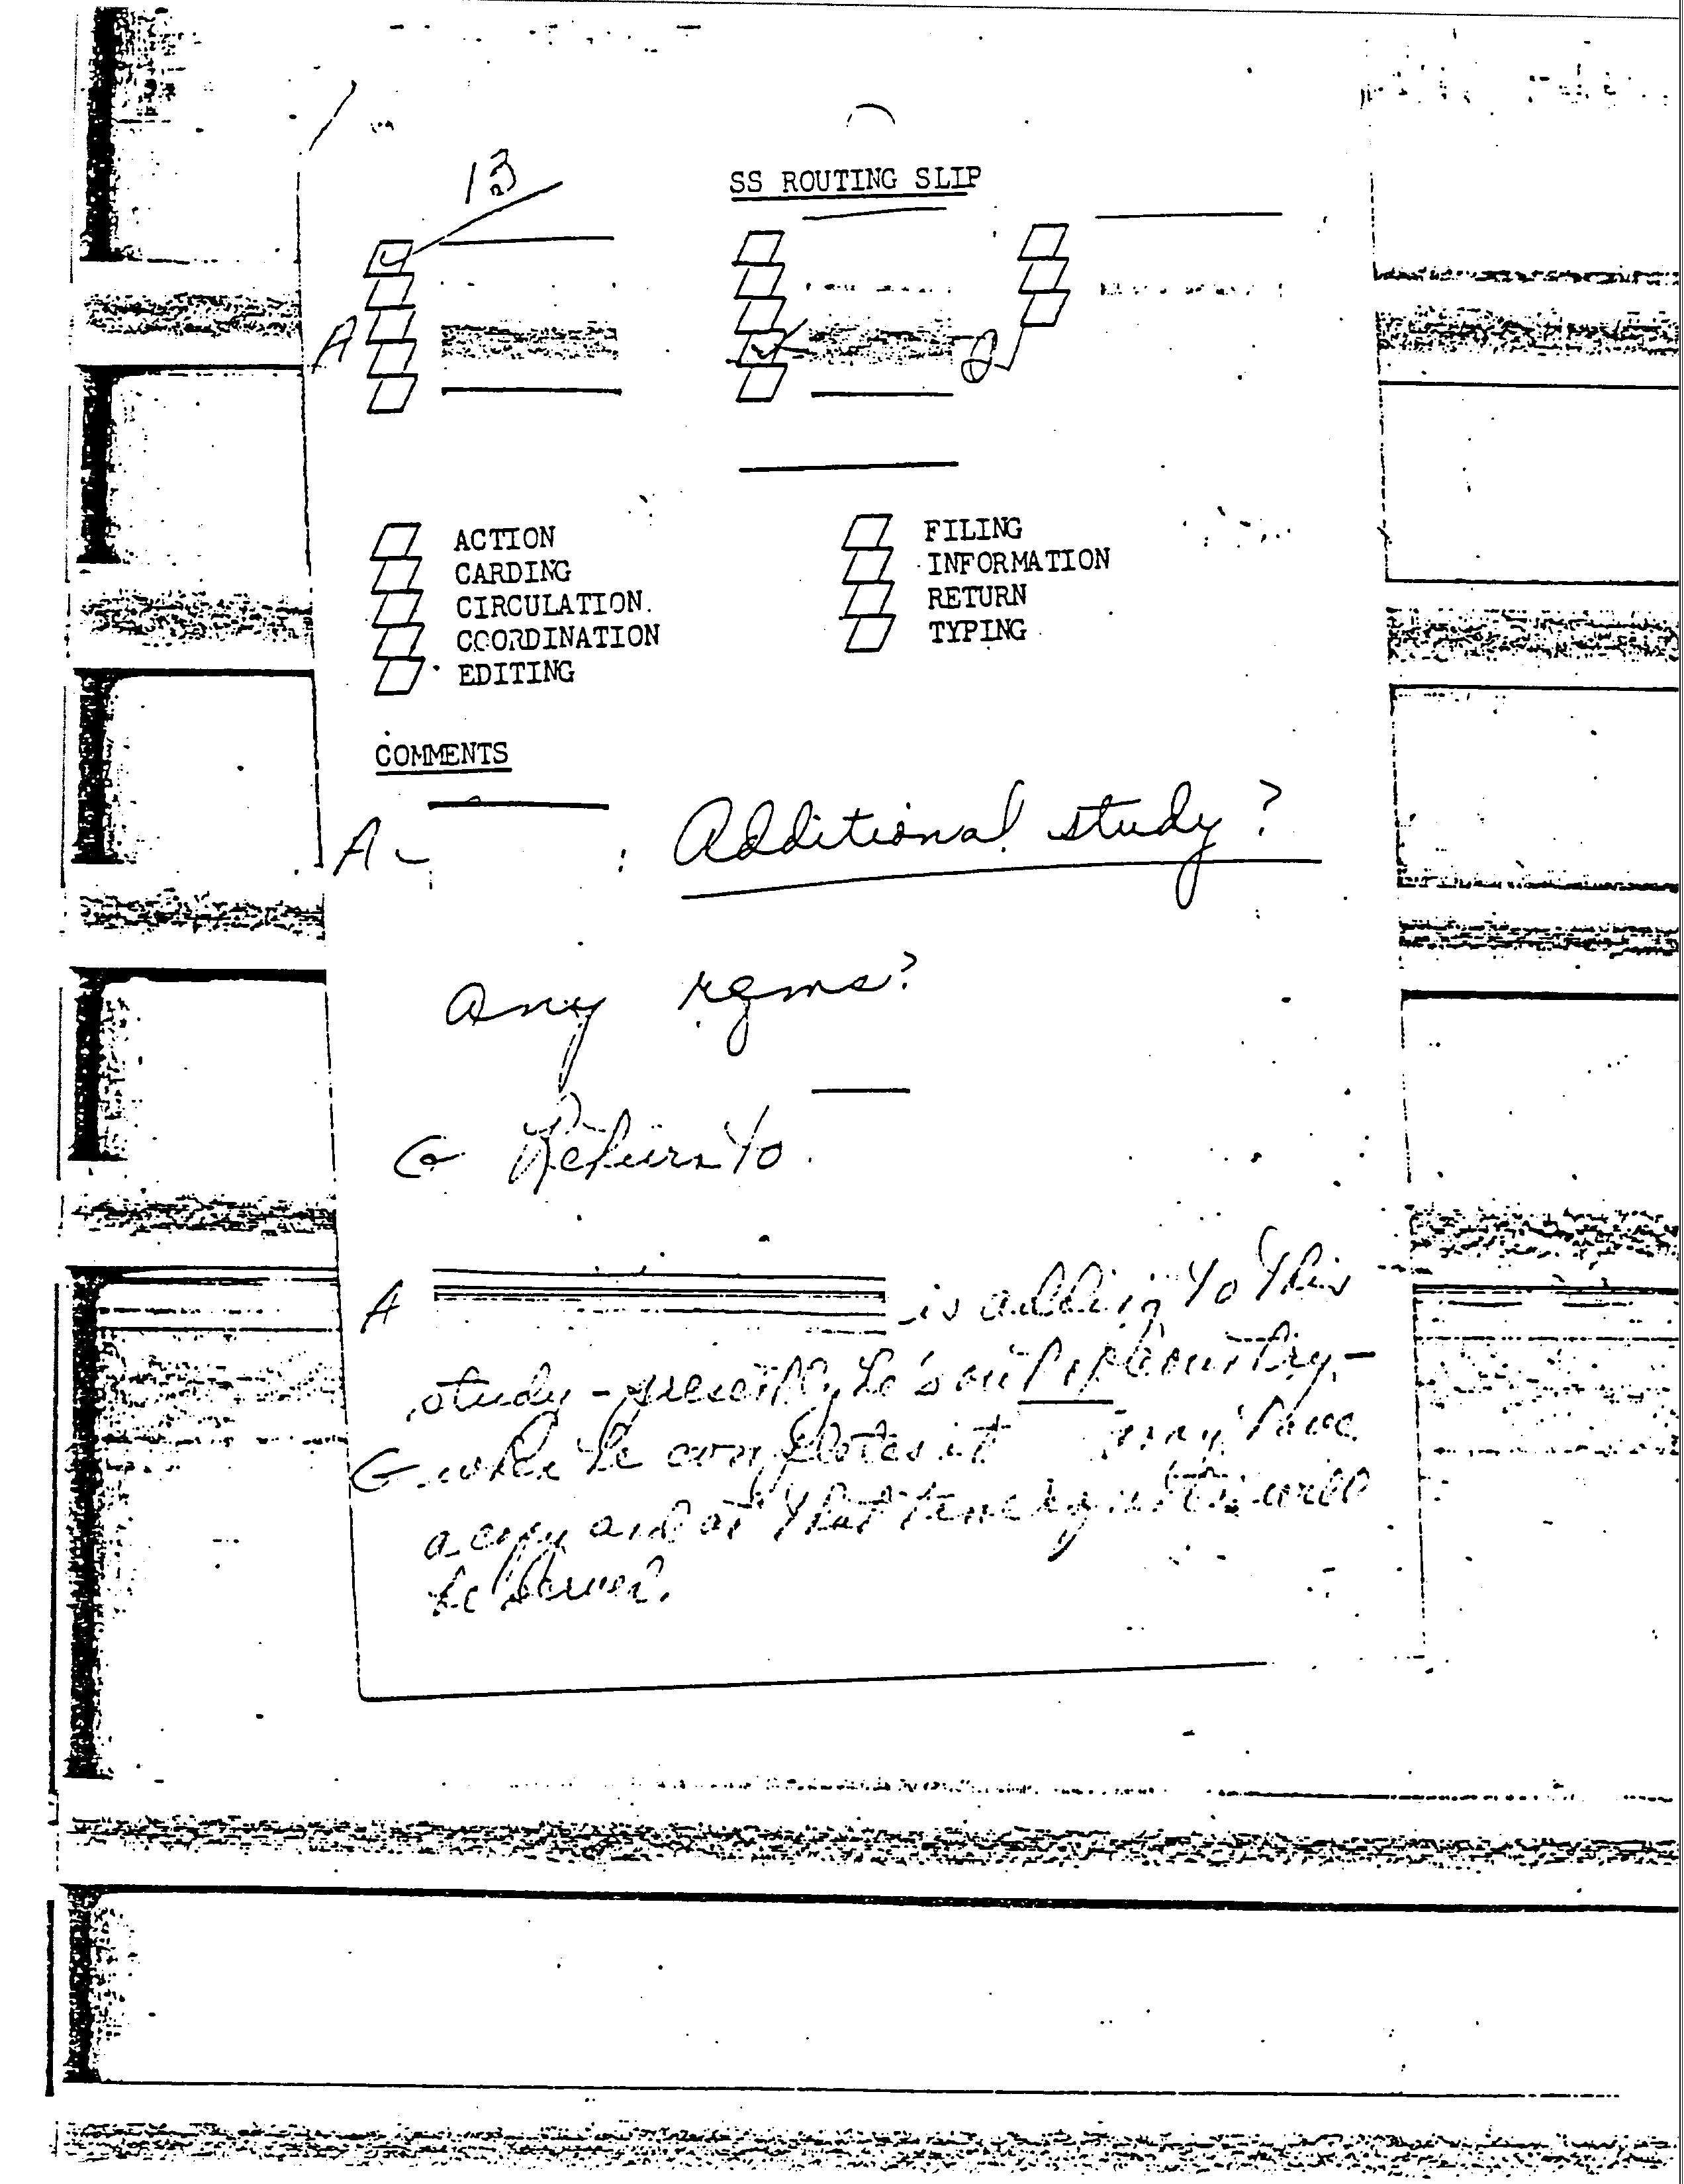 13
SS ROUTING SLIP
A
ACTION
CARDING
CIRCULATION
COORDINATION
EDITING
FILING
INFORMATION
RETURN
TYPING
COMMENTS
A - : Additional study?
any rqms?
Return to
A is adding to this
study - presently he's out of country -
when he completes it may have
a copy and at that time will
be